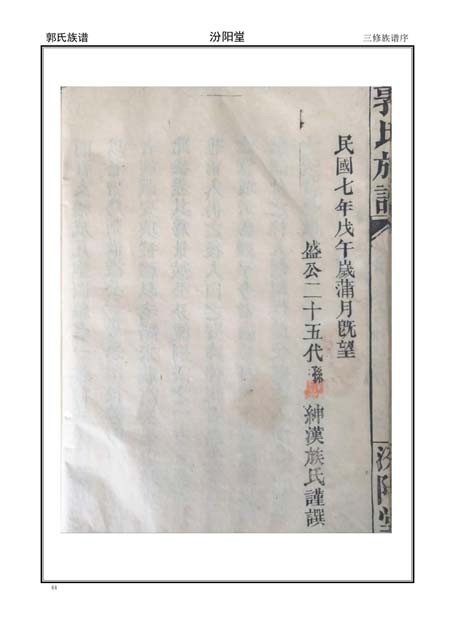 郭氏族谱
汾阳堂
三修族谱序
郭氏族譜
汾陽堂
民國七年戊午歲蒲月既望
盛公二十五代孫紳漢族氏謹譔
44